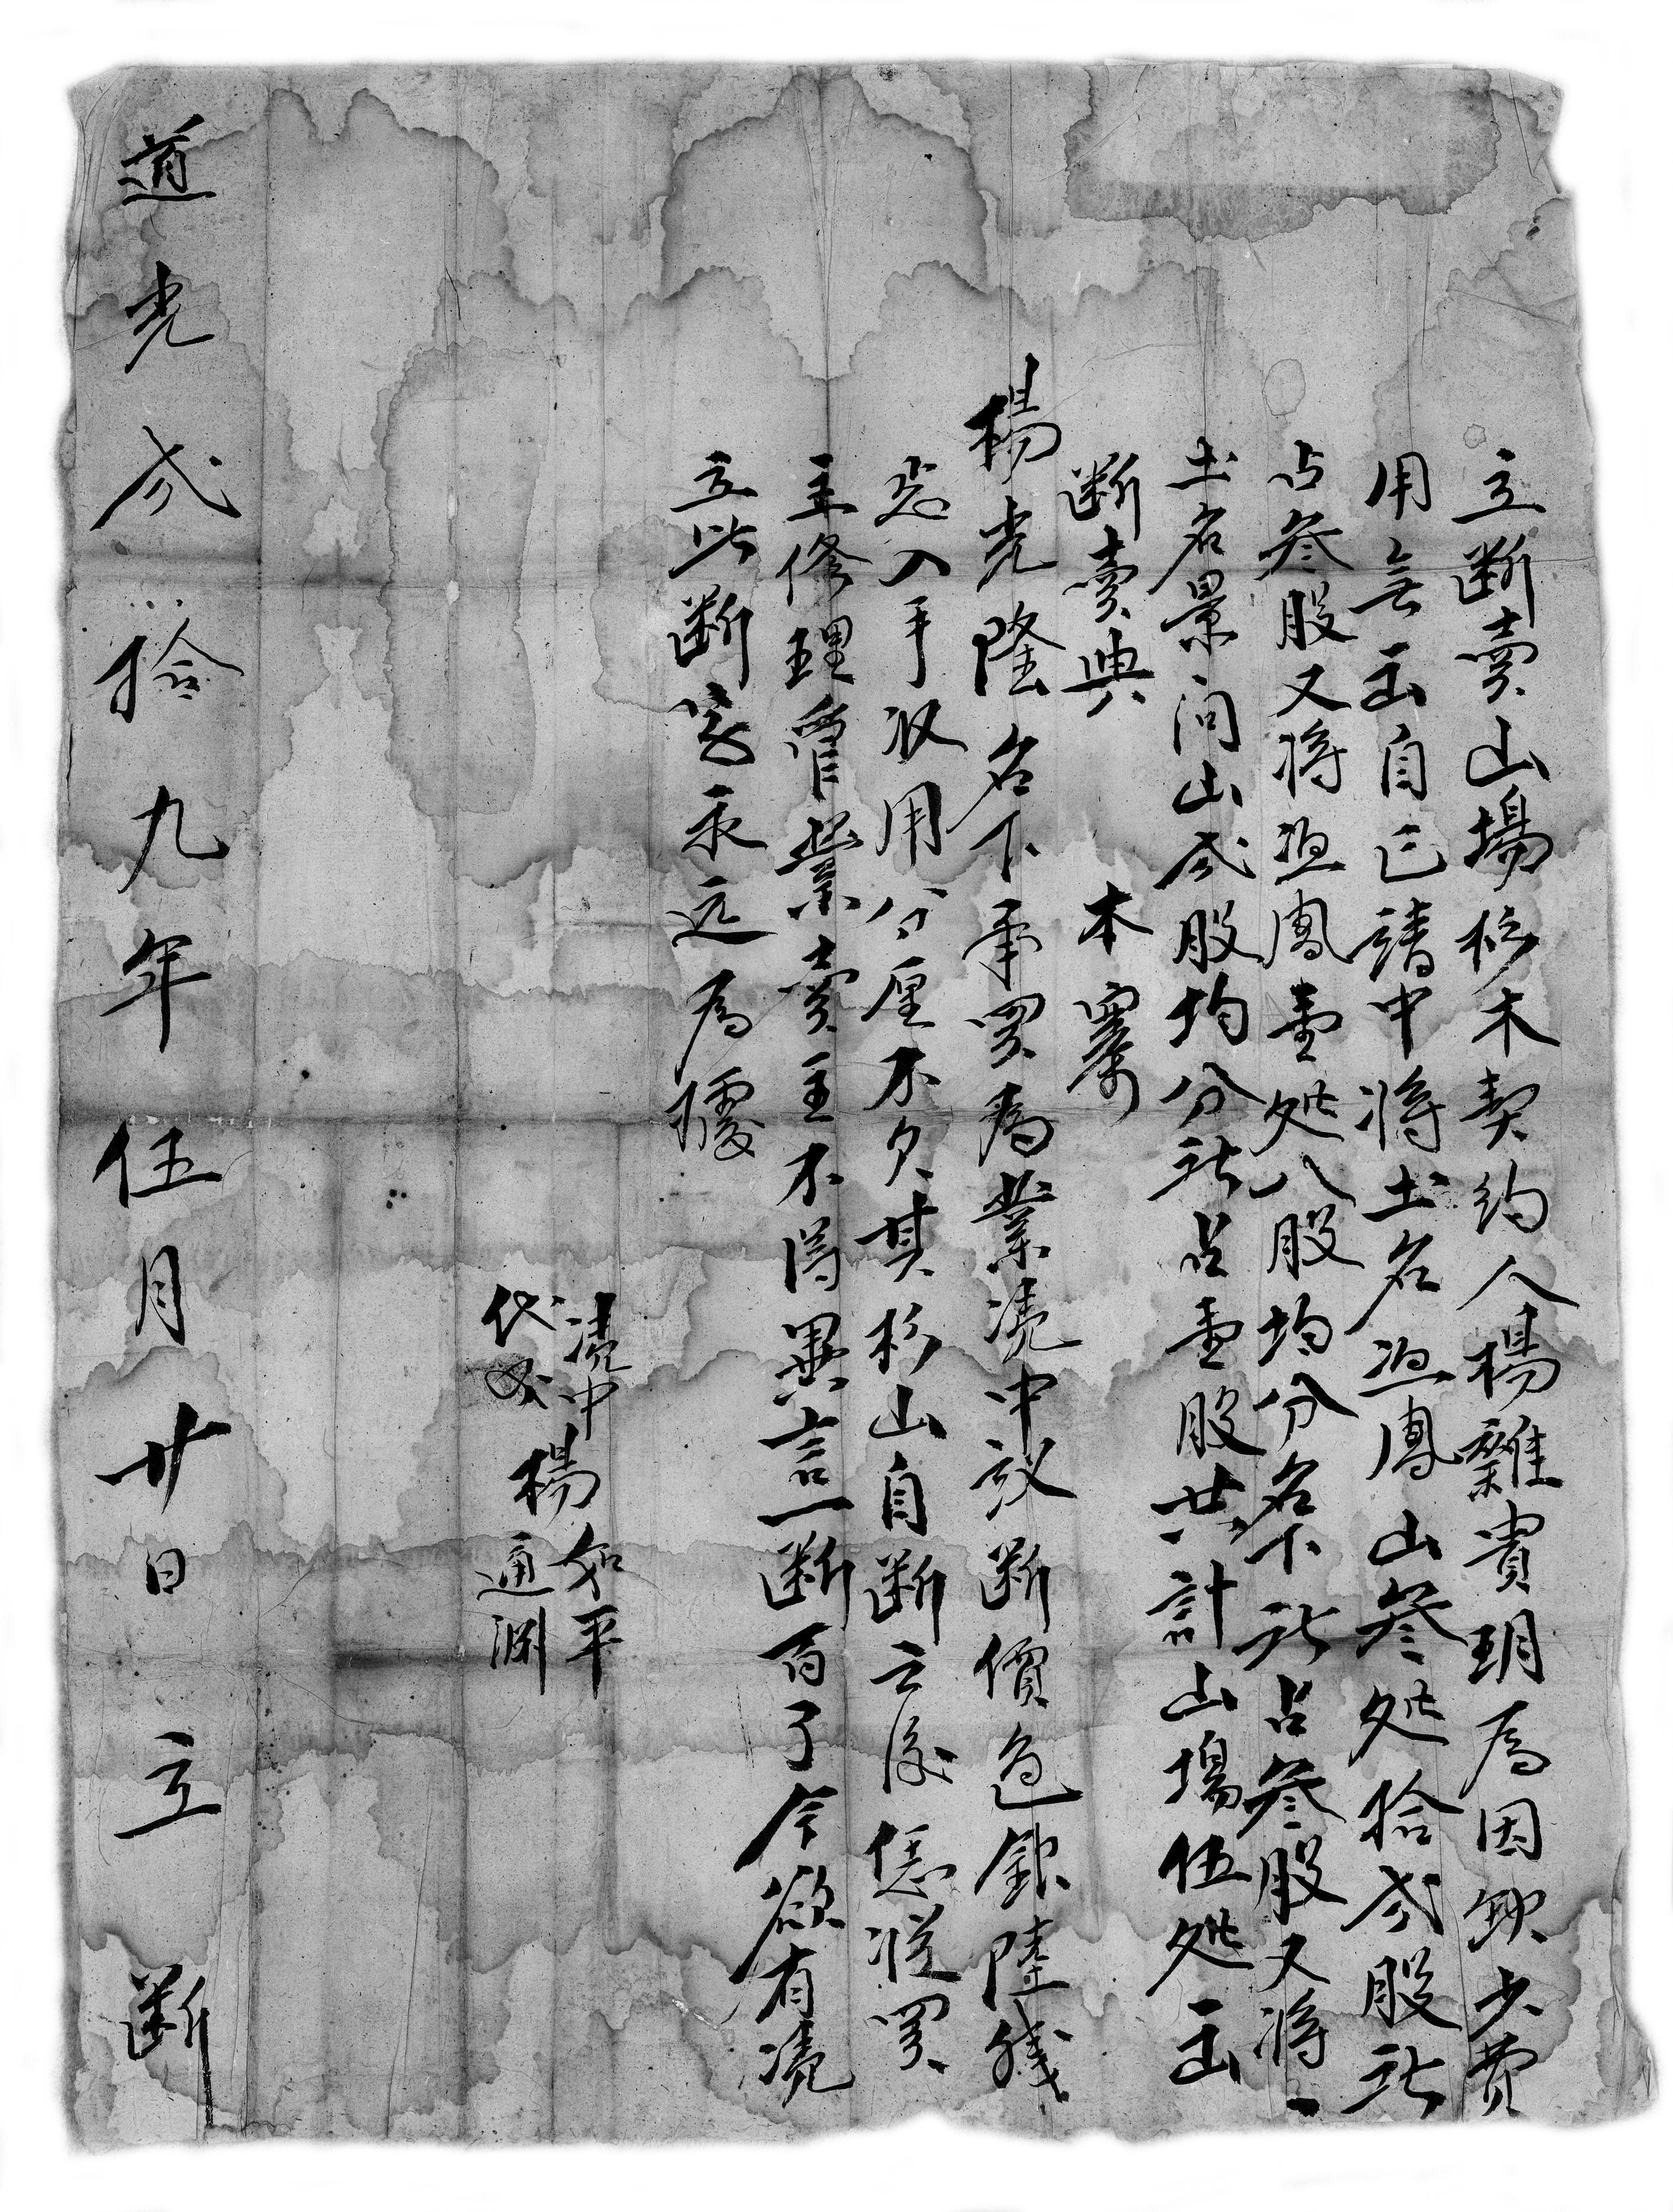 立断賣山塲杉木契約人楊難貴玥為因缺少費
用無出自己請中將土名迫鳳山叁処拾贰股龂
占叁股又將迫鳳壹処八股均分名下龂占叁股又將一
土名景问山贰股均分龂占壹股共計山塲伍処出
断賣與　本寨
楊光隆名下承買為業凴中议断價色銀陸錢
迫入手収用分厘不欠其杉山自断之後任從買
主修理管業賣主不得異言一断百了今欲有凴
立此断字永远為據
凴中 楊 如平
代筆 通渊
道光贰拾九年伍月廿日立断